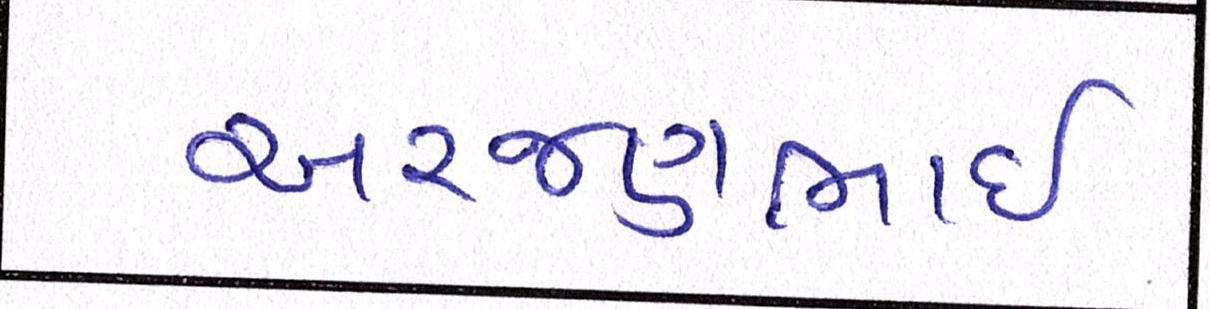 અરજણભાઈ